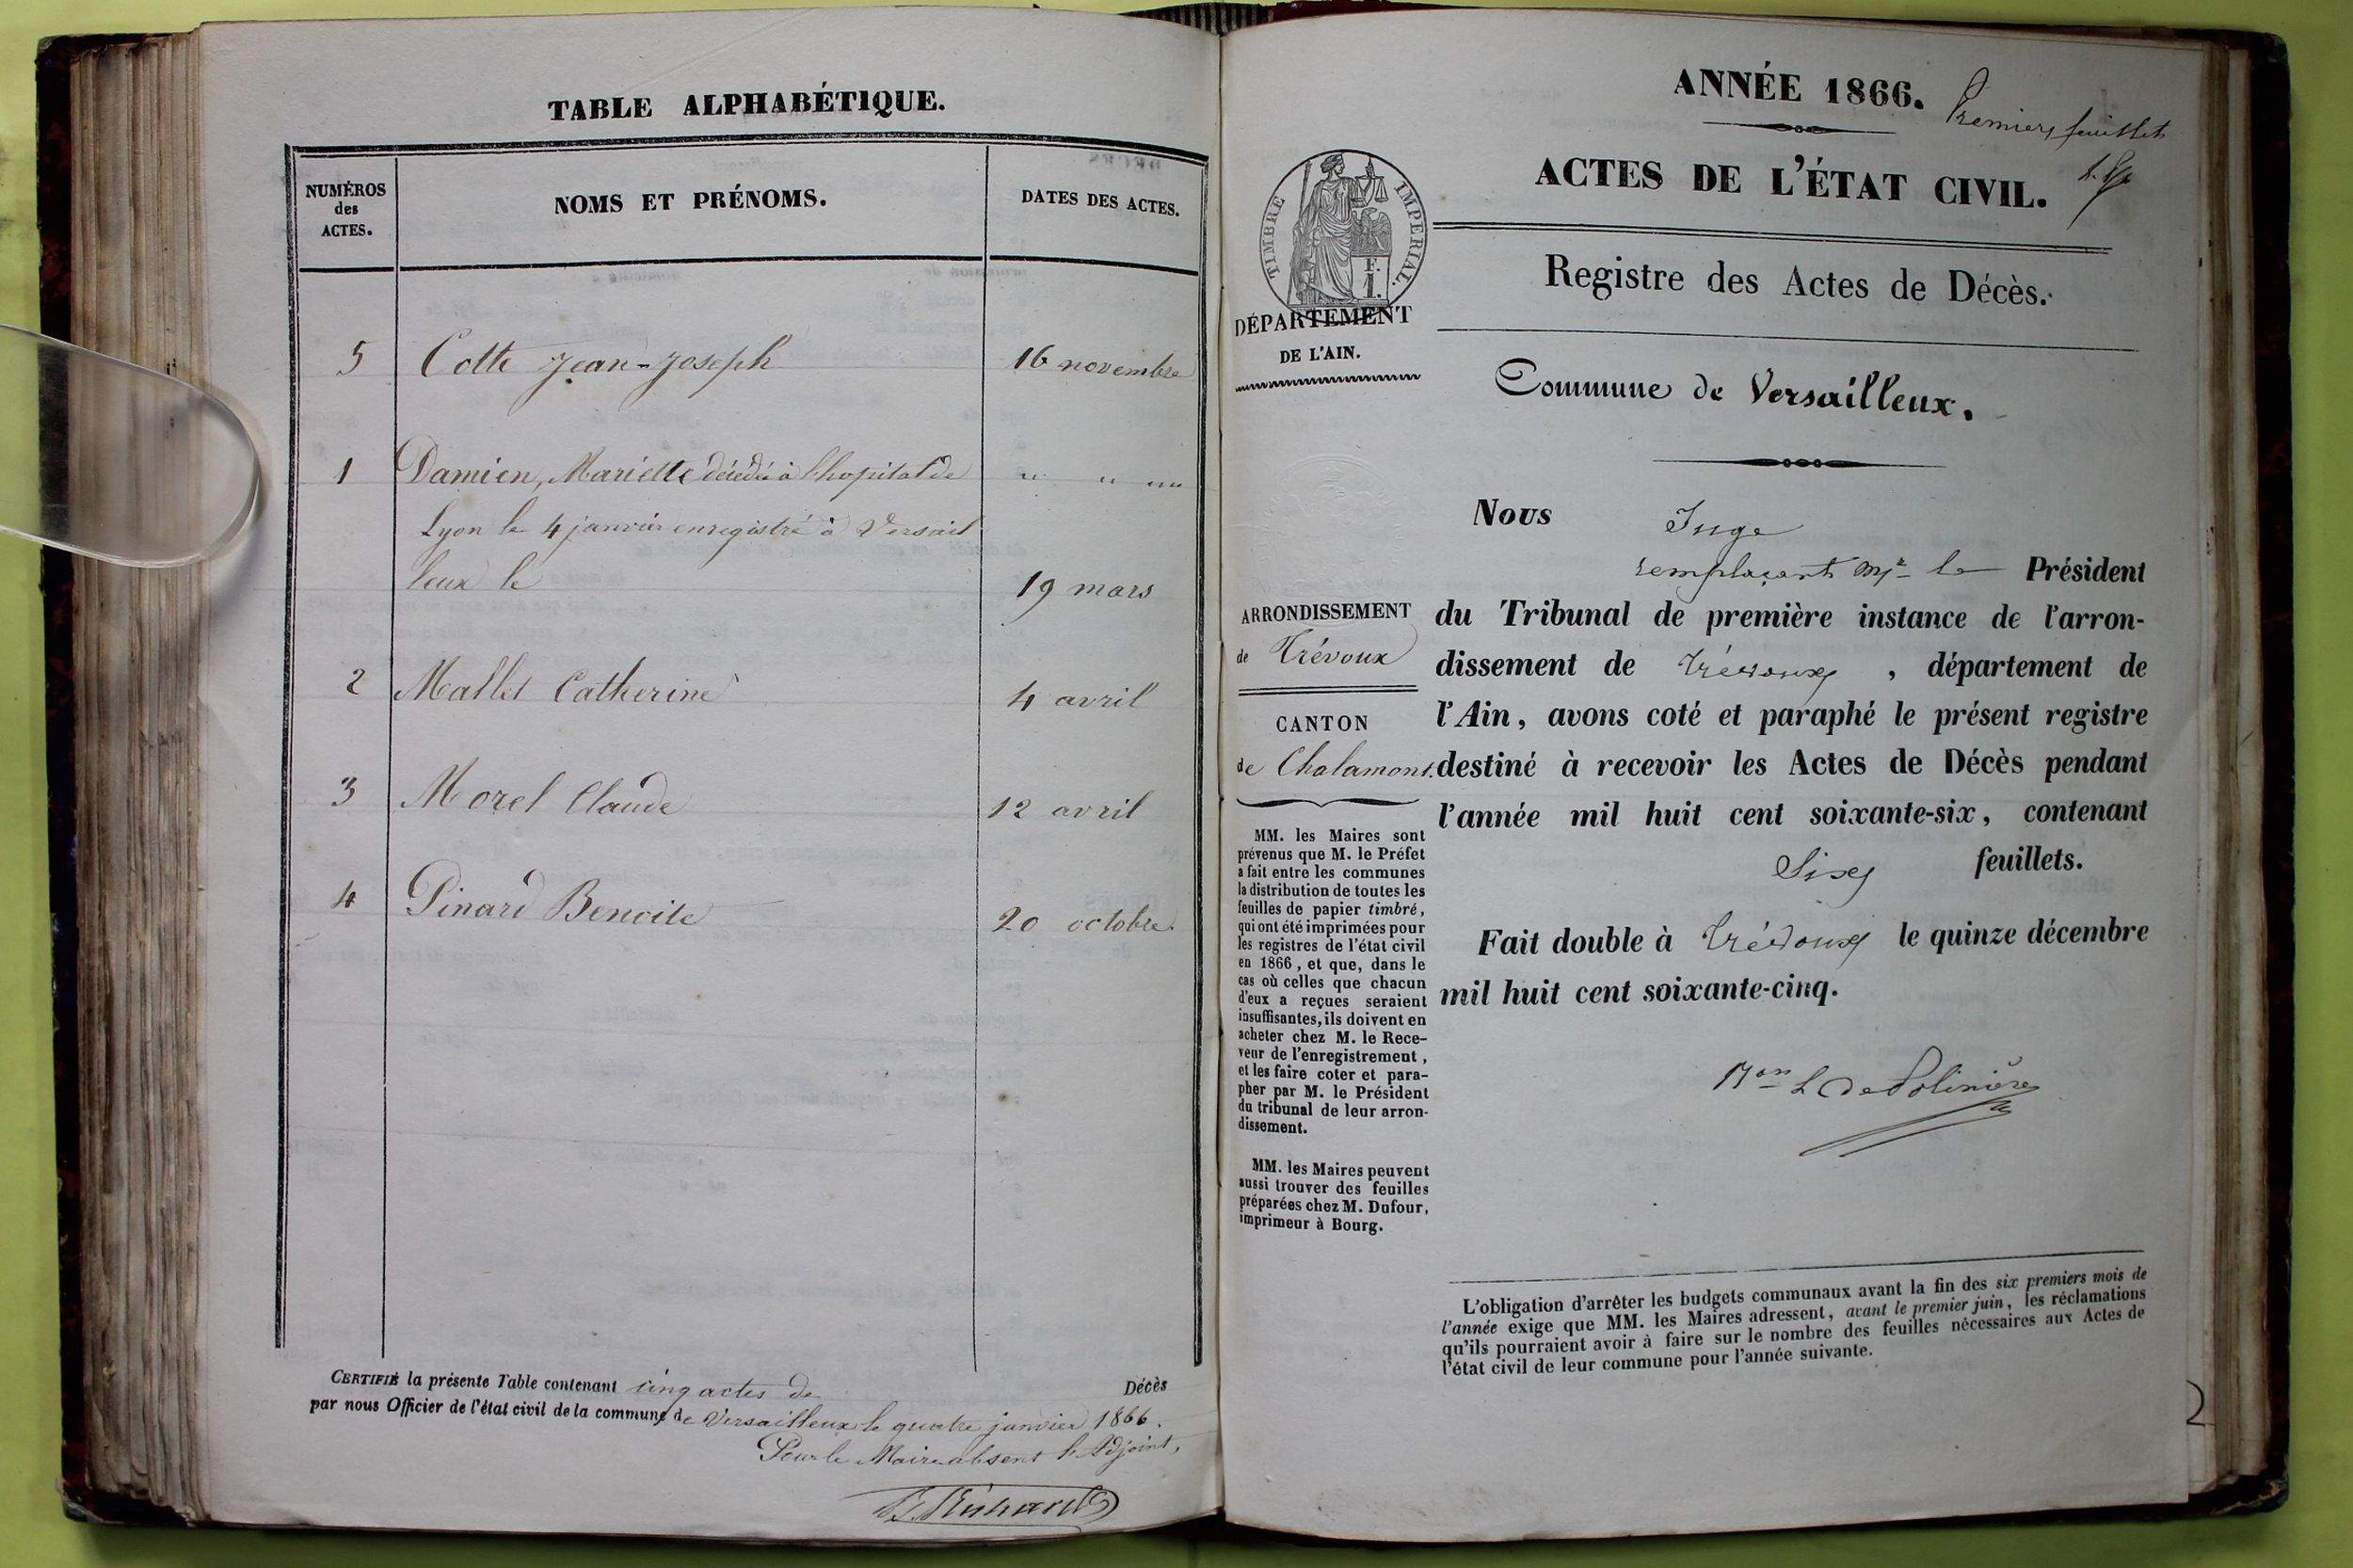 TABLE ALPHABÉTIQUE.
NUMÉROS des ACTES.
NOMS ET PRÉNOMS.
DATES DES ACTES.
5 Cotte Jean-Joseph 16 novembre
1 Damien, Mariette décédée à l'hopital de " " ""
Lyon le 4 janvier enregistré à Versail
leux le 19 mars
2 Mallet Catherine 4 avril
3 Morel Claude 12 avril
4 Pinard Benoite 20 octobre.
CERTIFIÉ la présente Table contenant cinq actes de Décès
par nous Officier de l'état civil de la commune de Versailleux le quatre janvier 1866.
Pour le Maire absent l'Adjoint,
ANNÉE 1866.
Premier feuillet
ACTES DE L'ÉTAT CIVIL.
TIMBRE IMPERIAL.
Registre des Actes de Décès.
DÉPARTEMENT
DE L'AIN.
Commune de Versailleux.
ARRONDISSEMENT
de Trévoux
CANTON
de Chalamont.
MM. les Maires sont
prévenus que M. le Préfet
a fait entre les communes
la distribution de toutes les
feuilles de papier timbré,
qui ont été imprimées pour
les registres de l'état civil
en 1866, et que, dans le
cas où celles que chacun
d'eux a reçues seraient
insuffisantes, ils doivent en
acheter chez M. le Rece-
veur de l'enregistrement,
et les faire coter et para-
pher par M. le Président
du tribunal de leur arron-
dissement.
MM. les Maires peuvent
aussi trouver des feuilles
préparées chez M. Dufour,
imprimeur à Bourg.
Nous Juge
remplaçant Mr le Président
du Tribunal de première instance de l'arron-
dissement de Trévoux, département de
l'Ain, avons coté et paraphé le présent registre
destiné à recevoir les Actes de Décès pendant
l'année mil huit cent soixante-six, contenant
Six feuillets.
Fait double à Trévoux le quinze décembre
mil huit cent soixante-cinq.
Bon L De Polinière
L'obligation d'arrêter les budgets communaux avant la fin des six premiers mois de
l'année exige que MM. les Maires adressent, avant le premier juin, les réclamations
qu'ils pourraient avoir à faire sur le nombre des feuilles nécessaires aux Actes de
l'état civil de leur commune pour l'année suivante.
2